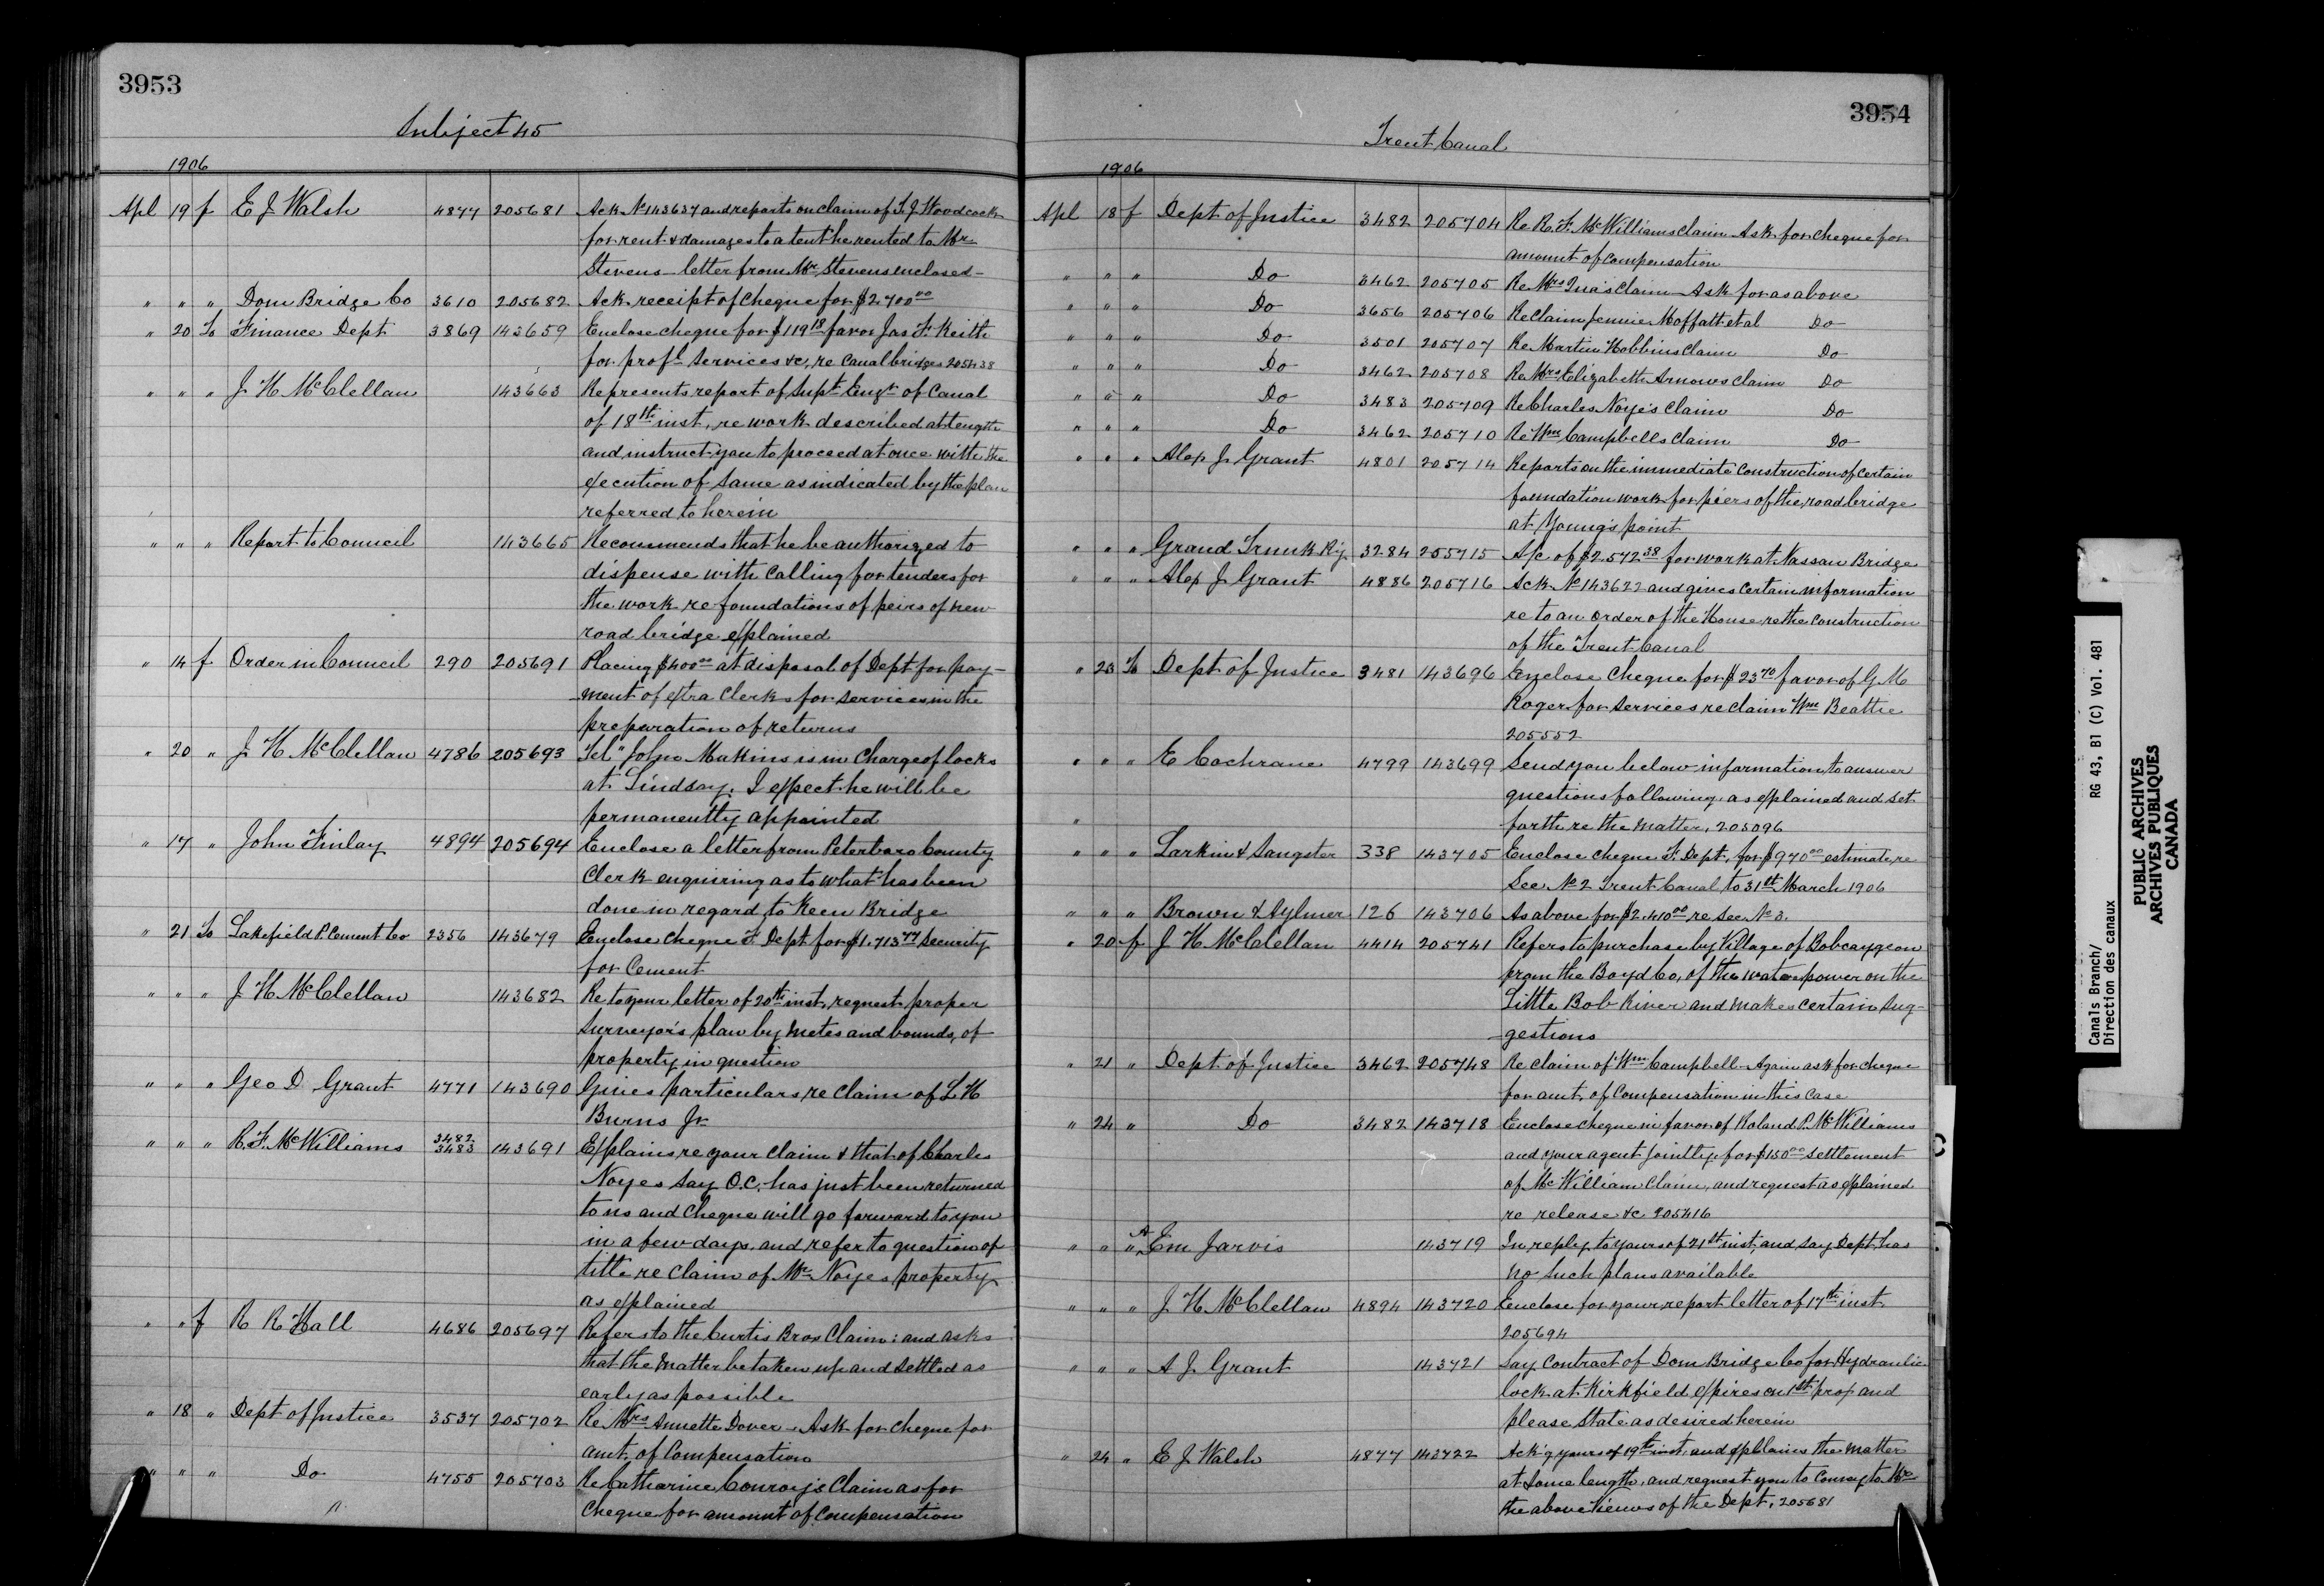 3953
Subject 45
1906
Apl 19 f E J Walsh 4877 205681 Ack No 143637 and reports on claim of T. J Woodcock
for rent & damages to a tent he rented to Mr
Stevens - letter from Mr Stevens enclosed -
" " " Dom Bridge Co 3610 205682 Ack receipt of cheque for $2.700 00
" 20 To Finance Dept 3869 143659 Enclose cheque for $119 18 favor Jas F. Keith
for profl services &c, re Canal bridges 205438
" " " J H McClellan 143663 Represents report of Supt Engr of Canal
of 18th inst, re work described at length
and instruct you to proceed at once with the
execution of same as indicated by the plan
referred to herein
" " " Report to Council 143665 Recommends that he be authorized to
dispense with calling for tenders for
the work re foundations of peirs of new
road bridge explained
" 14 f Order in Council 290 205691 Placing $400 00 at disposal of Dept for pay-
ment of extra Clerks for services in the
preparation of returns
" 20 " J H McClellan 4786 205693 Tel "John Makins is in Charge of locks
at Lindsay. I expect he will be
permanently appointed
" 17 " John Finlay 4894 205694 Enclose a letter from Peterboro County
Clerk enquiring as to what has been
done in regard to Keen Bridge
" 21 To Lakefield P. Cement Co 2356 143679 Enclose cheque F. Dept for $1.713 77 Security
for Cement
" " " J H McClellan 143682 Re to your letter of 20th inst, request proper
surveyor's plan by metes and bounds, of
property in question
" " " Geo D Grant 4771 143690 Gives particulars, re Claim of L H
Burns Jr
" " " R. F. McWilliams 3482 3483 143691 Explains re your claim & that of Charles
Noyes say O.C. has just been returned
to us and cheque will go forward to you
in a few days, and refer to question of
title re claim of Mr Noyes property
as explained
" " f R R Hall 4686 205697 Refers to the Curtis Bros Claim: and asks
that the matter be taken up and settled as
early as possible
" 18 " Dept of Justice 3537 205702 Re Mrs Annette Dover - Ask for cheque for
amt of Compensation
" " " Do 4755 205703 Re Catharine Conroy's Claim as for
Cheque for amount of Compensation
3954
Trent Canal
1906
Apl 18 f Dept of Justice 3482 205704 Re R. F. McWilliams claim Ask for cheque for
amount of compensation
" " " Do 3462 205705 Re Mrs claim Ask for as above
" " " Do 3656 205706 Re Claim Jennie Moffatt et al Do
" " " Do 3501 205707 Re Martin Hobbins Claim Do
" " " Do 3462 205708 Re Mrs Elizabeth Arnows claim Do
" " " Do 3483 205709 Re Charles Noye's Claim Do
" " " Do 3462 205710 Re Wm Campbells Claim Do
" " " Alex J. Grant 4801 205714 Reports on the immediate construction of certain
foundation work for piers of the road bridge
at Young's point
" " " Grand Trunk Ry 3284 205715 A/c of $2.572 38 for work at Nassau Bridge
" " " Alex J. Grant 4886 205716 Ack No 143622 and gives certain information
re to an order of the House re the construction
of the Trent Canal
" 23 To Dept of Justice 3481 143696 Enclose Cheque for $23 70 favor of G M
Roger for services re claim Wm Beattie
205552
" " " E Cochrane 4799 143699 Send you below information to answer
questions following, as explained and set
" forth re the matter, 205096
" " " Larkin & Sangster 338 143705 Enclose cheque F. Dept, for $970 00 estimate, re
Sec No 2 Trent Canal, to 31st March 1906
" " " Brown & Aylmer 126 143706 As above for $2.410 00 re Sec No 3.
" 20 f J H McClellan 4414 205741 Refers to purchase by Village of Bobcaygeon
from the Boyd Co, of the water power on the
Little Bob River and makes certain sug-
gestions
" 21 " Dept of Justice 3462 205748 Re claim of Wm Campbell. Again ask for cheque
for amt, of Compensation in this case
" 24 " Do 3482 143718 Enclose cheque in favor of Roland P. McWilliams
and your agent jointly for $150 00 settlement
of McWilliam Claim, and request as explained
re release &c 205416
" " " Æm Jarvis 143719 In reply to yours of 21st inst, and say Dept. has
no such plans available
" " " J. H. McClellan 4894 143720 Enclose for your report letter of 17th inst
205694
" " " A J. Grant 143721 Say Contract of Dom Bridge Co for Hydraulic
lock at Kirkfield, expires on 1st prox and
please state as desired herein
" 24 " E J Walsh 4877 143722 Ack'g yours of 19th inst, and explains the matter
at some length, and request you to convey to Mr
the above views of the Dept, 205681
Canals Branch/
Direction des canaux
RG 43, B1 (C) Vol. 481
PUBLIC ARCHIVES
ARCHIVES PUBLIQUES
CANADA